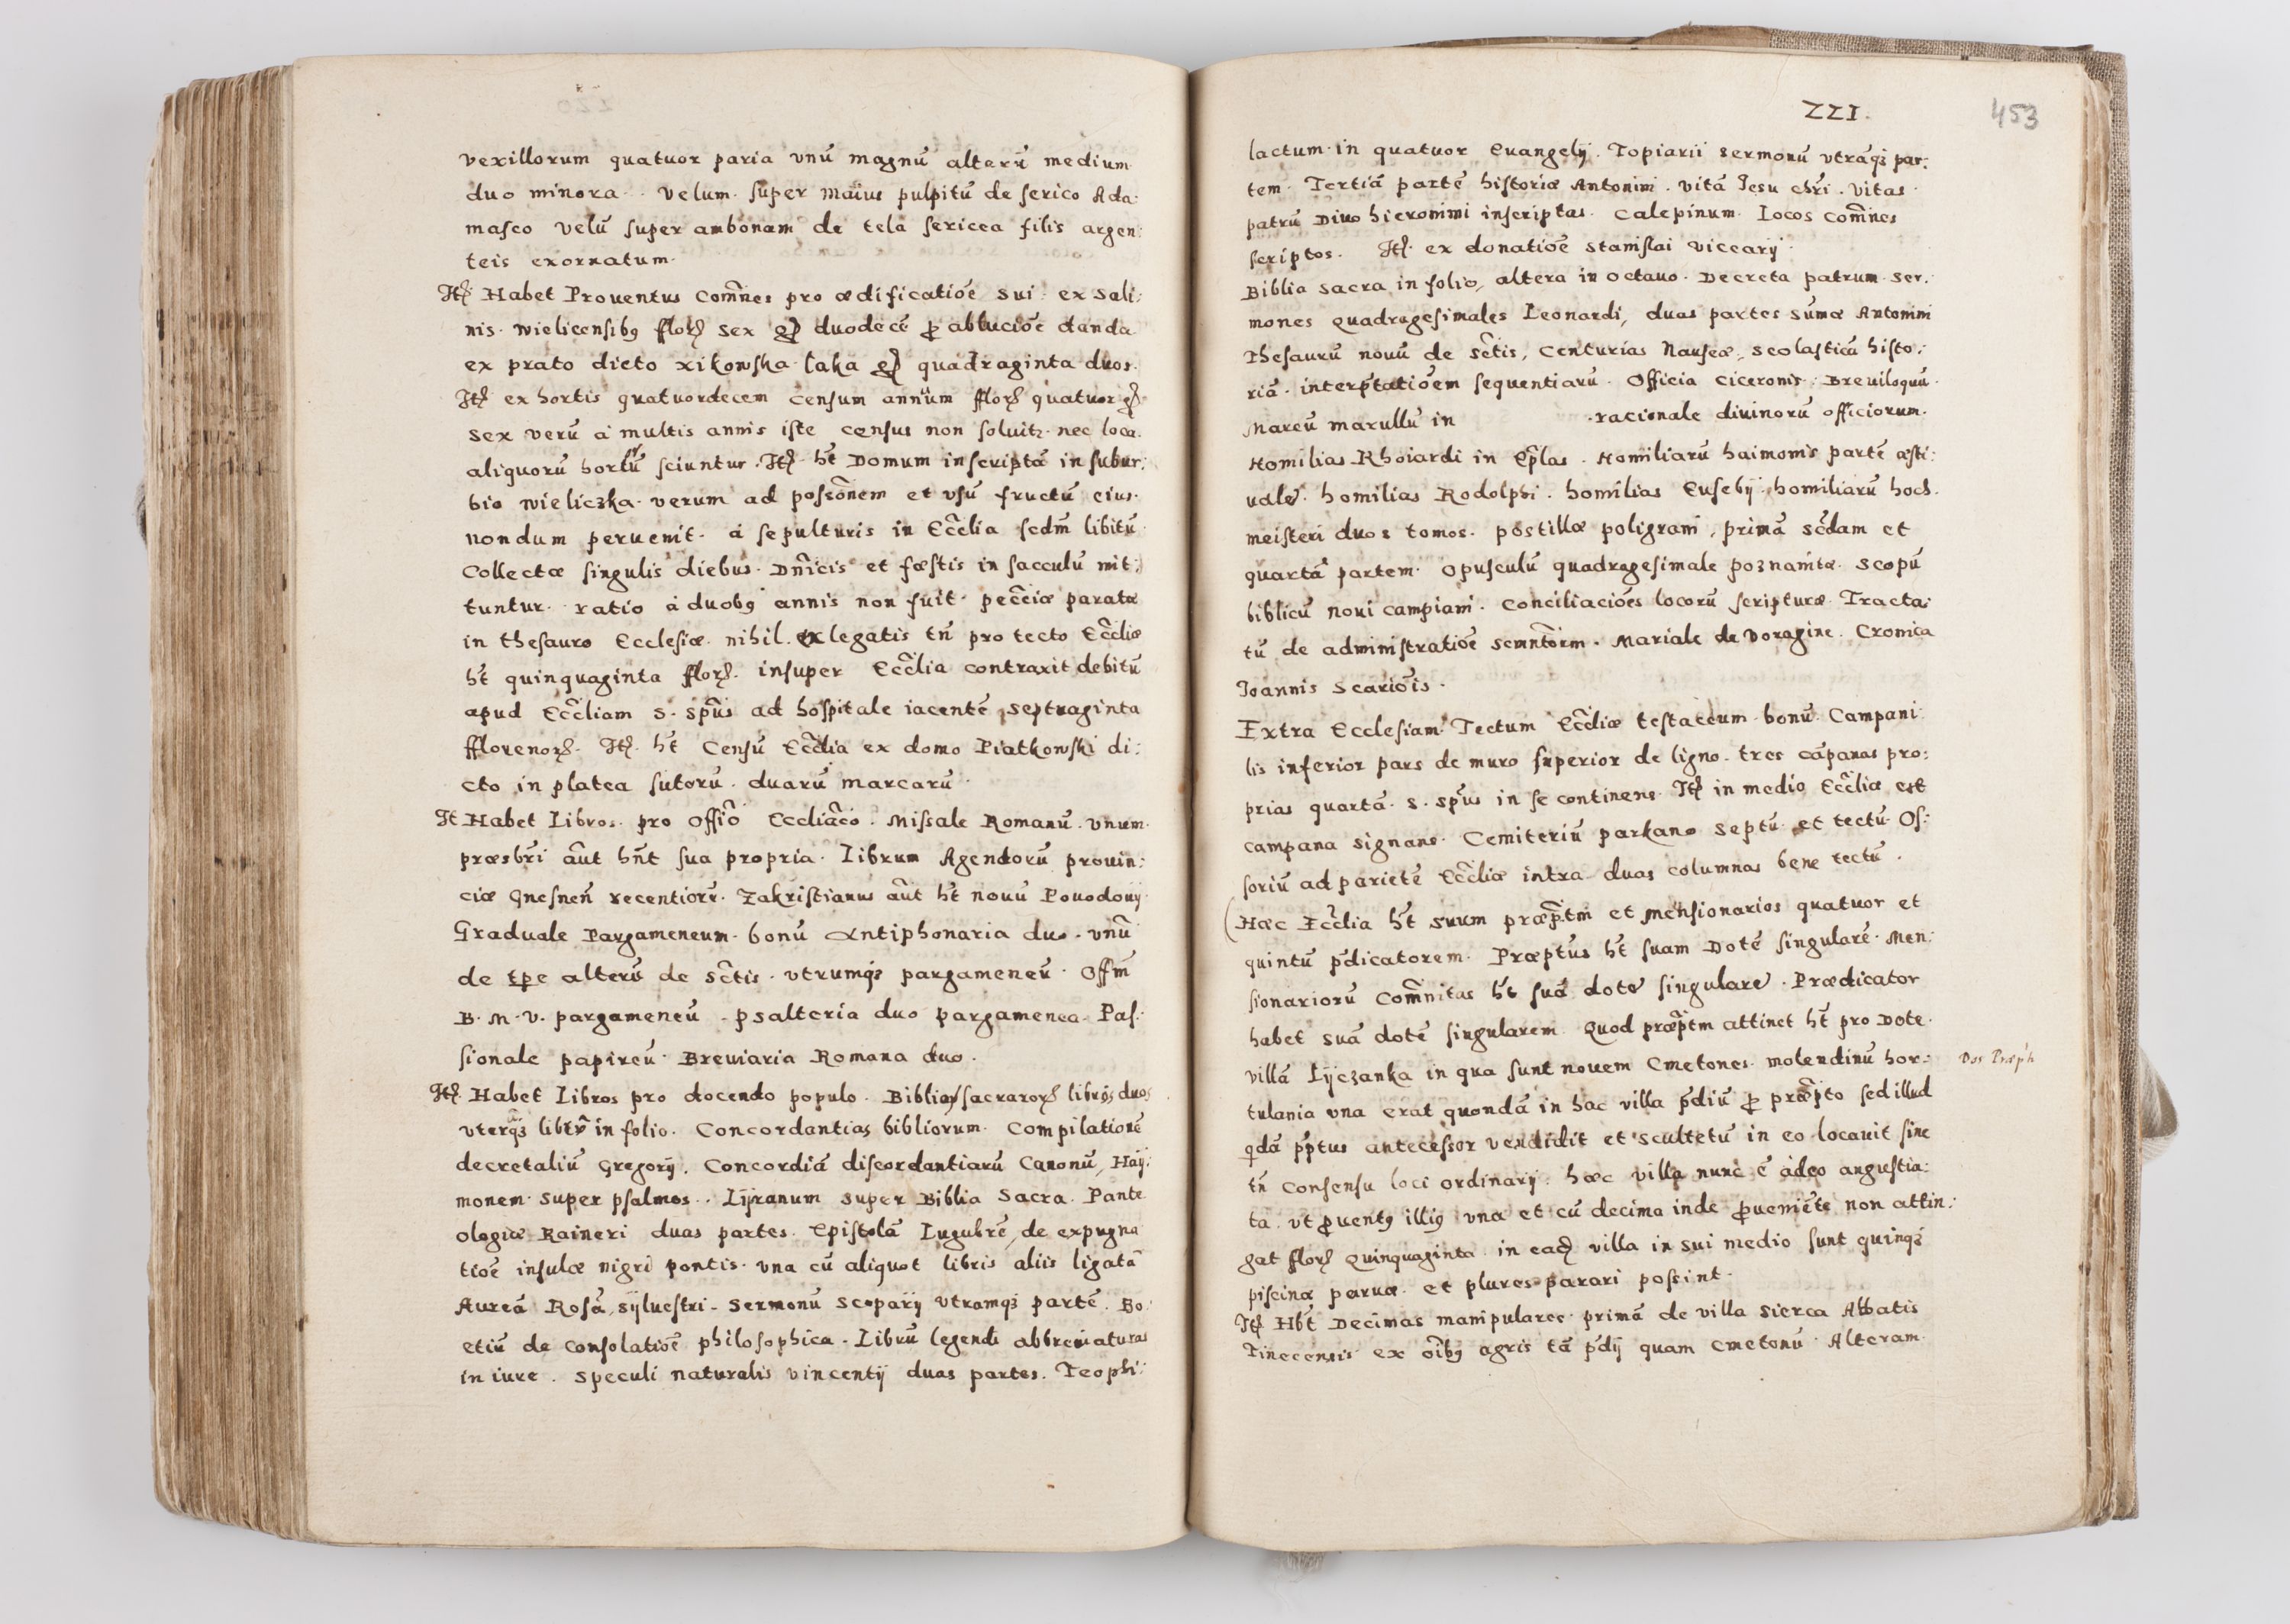 vexillorum quatuor paria vnũ magnũ alterũ medium
duo minora. Velum super maius pulpitũ de serico Ada:
masco velũ super ambonam de tela sericea filis argen:
teis exornatum.
Itẽ Habet Prouentus Com̃nes pro ædificatiõe sui ex Sali:
nis Wielicensibꝯ fflorꝭ sex gꝭ duodecẽ ꝓ abluciõe danda
ex prato dicto xikowska laka gꝭ quadraginta duos.
Itẽ ex hortis quatuordecem censum annũum fflorꝭ quatuor gꝭ
sex verũ á multis annis iste census non soluitꝛ nec loca
aliquorũ hortũ sciuntur. Itẽ ht̃ Domum inscriptã in subur:
bio Wieliczka verum ad possõnem et vsũ fructũ eius
nondum peruenit. á sepulturis in Eccl̃ia scdm̃ libitũ
Collectæ singulis diebus Dn̄icis et fæstis in sacculũ mit:
tuntur. ratio á duobꝯ annis non fuit pecc̃iæ paratæ
in thesauro Ecclesiæ nihil. ex legatis tñ pro tecto Eccl̃iæ
ht̃ quinquaginta fflorꝭ. insuper Eccl̃ia contraxit debitũ
apud Eccl̃iam S. Sp̃us ad hospitale iacentẽ septuaginta
fflorenorꝭ. Itẽ ht̃ Censũ Eccl̃ia ex domo Piatkowski di:
cto in platea sutorũ duarũ marcarũ.
It Habet Libros pro Offĩo Eccliãco. Missale Romanũ vnum.
præsbr̃i aũt hñt sua propria. Librum Agendorũ prouin:
ciæ Gnesnen̄ recentiorẽ. Zakristianus aũt ht̃ nouũ Pouodouÿ
Graduale Pargameneum bonũ Antiphonaria duo. vnũ
de tp̃e alterũ de Sc̃tis vtrumqꝫ pargameneũ. Offm̃
B. M. V. pargameneũ psalteria duo pargamenea. Pas:
sionale papireũ. Breuiaria Romana duo.
Itẽ Habet Libros pro docendo populo. Bibliorꝭ sacrarorꝭ libros duos
vterqꝫ liber in folio. Concordantias bibliorum. Compilationẽ
decretaliũ Gregorÿ. Concordiã discordantiarũ Canonũ, Haÿ:
monem super psalmos. Lÿranum super Biblia Sacra. Pante
ologiæ Raineri duas partes. Epistolã Lugubrẽ, de expugna
tiõe insulæ nigri pontis. vna cũ aliquot libris aliis ligatã
Aureã Rosã, sÿluestri. Sermonũ scoparÿ vtramqꝫ partẽ. Bo:
etiũ de consolatiõe philosophica. Librũ legendi abbreuiaturas
in iure. Speculi naturalis vincentÿ duas partes. Teophi:
ZZI.
453
lactum in quatuor Euangelÿ. Topiarii sermonũ vtrãqꝫ par:
tem. Tertiã partẽ historiæ Antonini. vitã Jesu chr̃i. vitas
patrũ Diuo hieronimi inscriptas. Calepinum. Locos com̃nes
scriptos. Itẽ ex donatiõe Stanislai viccarÿ
Biblia sacra in folio, altera in Octauo. Decreta patrum. Ser:
mones Quadragesimales Leonardi, duas partes sũmæ Antonini
Thesaurũ nouũ de Sc̃tis, Centurias Nauseæ, Scolasticã histo:
riã. interp̃tatiõem sequentiarũ. Officia Ciceronis. Breuiloquũ
Marcũ marullũ in racionale diuinorũ officiorum.
Homilias Rhoiardi in Ep̃las. Homiliarũ haimonis partẽ æsti:
ualẽ. homilias Rodolphi. homilias Eusebÿ. homiliarũ hoch
meisteri duos tomos. postillæ poligrani, primã Sc̃dam et
quartã partem. Opusculũ quadragesimale poznanitæ. Scopũ
biblicũ noui campiani. Conciliaciões locorũ scripturæ. Tracta:
tũ de administratiõe scmntõrm. Mariale de Voragine. Cronica
Joannis Scariõis.
Extra Ecclesiam Tectum Eccl̃iæ testaceum bonũ. Campani:
lis inferior pars de muro superior de ligno. tres cãpanas pro:
prias quartã S. Sp̃us in se continens. Itẽ in medio Eccl̃iæ est
campana signans. Cemiteriũ parkano septũ et tectũ. Os:
soriũ ad parietẽ Eccl̃iæ intra duas columnas bene tectũ.
(Hæc Eccl̃ia ht̃ suum præp̃tm et Mensionarios quatuor et
quintũ p̃dicatorem. Præptũs ht̃ suam Dotẽ singularẽ. Men:
sionariorũ Com̃nitas ht̃ suã dotẽ singularẽ. Prædicator
habet suã dotẽ singularem. Quod præp̃tm attinet ht̃ pro Dote
villã Lÿczanka in qua sunt nouem Cmetones. molendinũ hor:
Dos Præp̃ti
tulania vna erat quondã in hac villa p̃diũ ꝓ præp̃to sed illud
qdã pp̃tus antecessor vendidit et scultetũ in eo locauit sine
tñ consensu loci ordinarÿ. hæc villa nunc ẽ adeo angustia:
ta. vt ꝓuentꝯ illiꝯ vna et cũ decima inde ꝓueniẽte non attin:
gat fflorꝭ Quinquaginta in eadꝭ villa in sui medio sunt quinqꝫ
piscinæ paruæ et plures parari possint.
Itẽ Hbt̃ Decimas manipulares primã de villa Sierca Abbatis
Tinecensis ex oĩbꝯ agris tã p̃dÿ quam Cmetonũ. Alteram